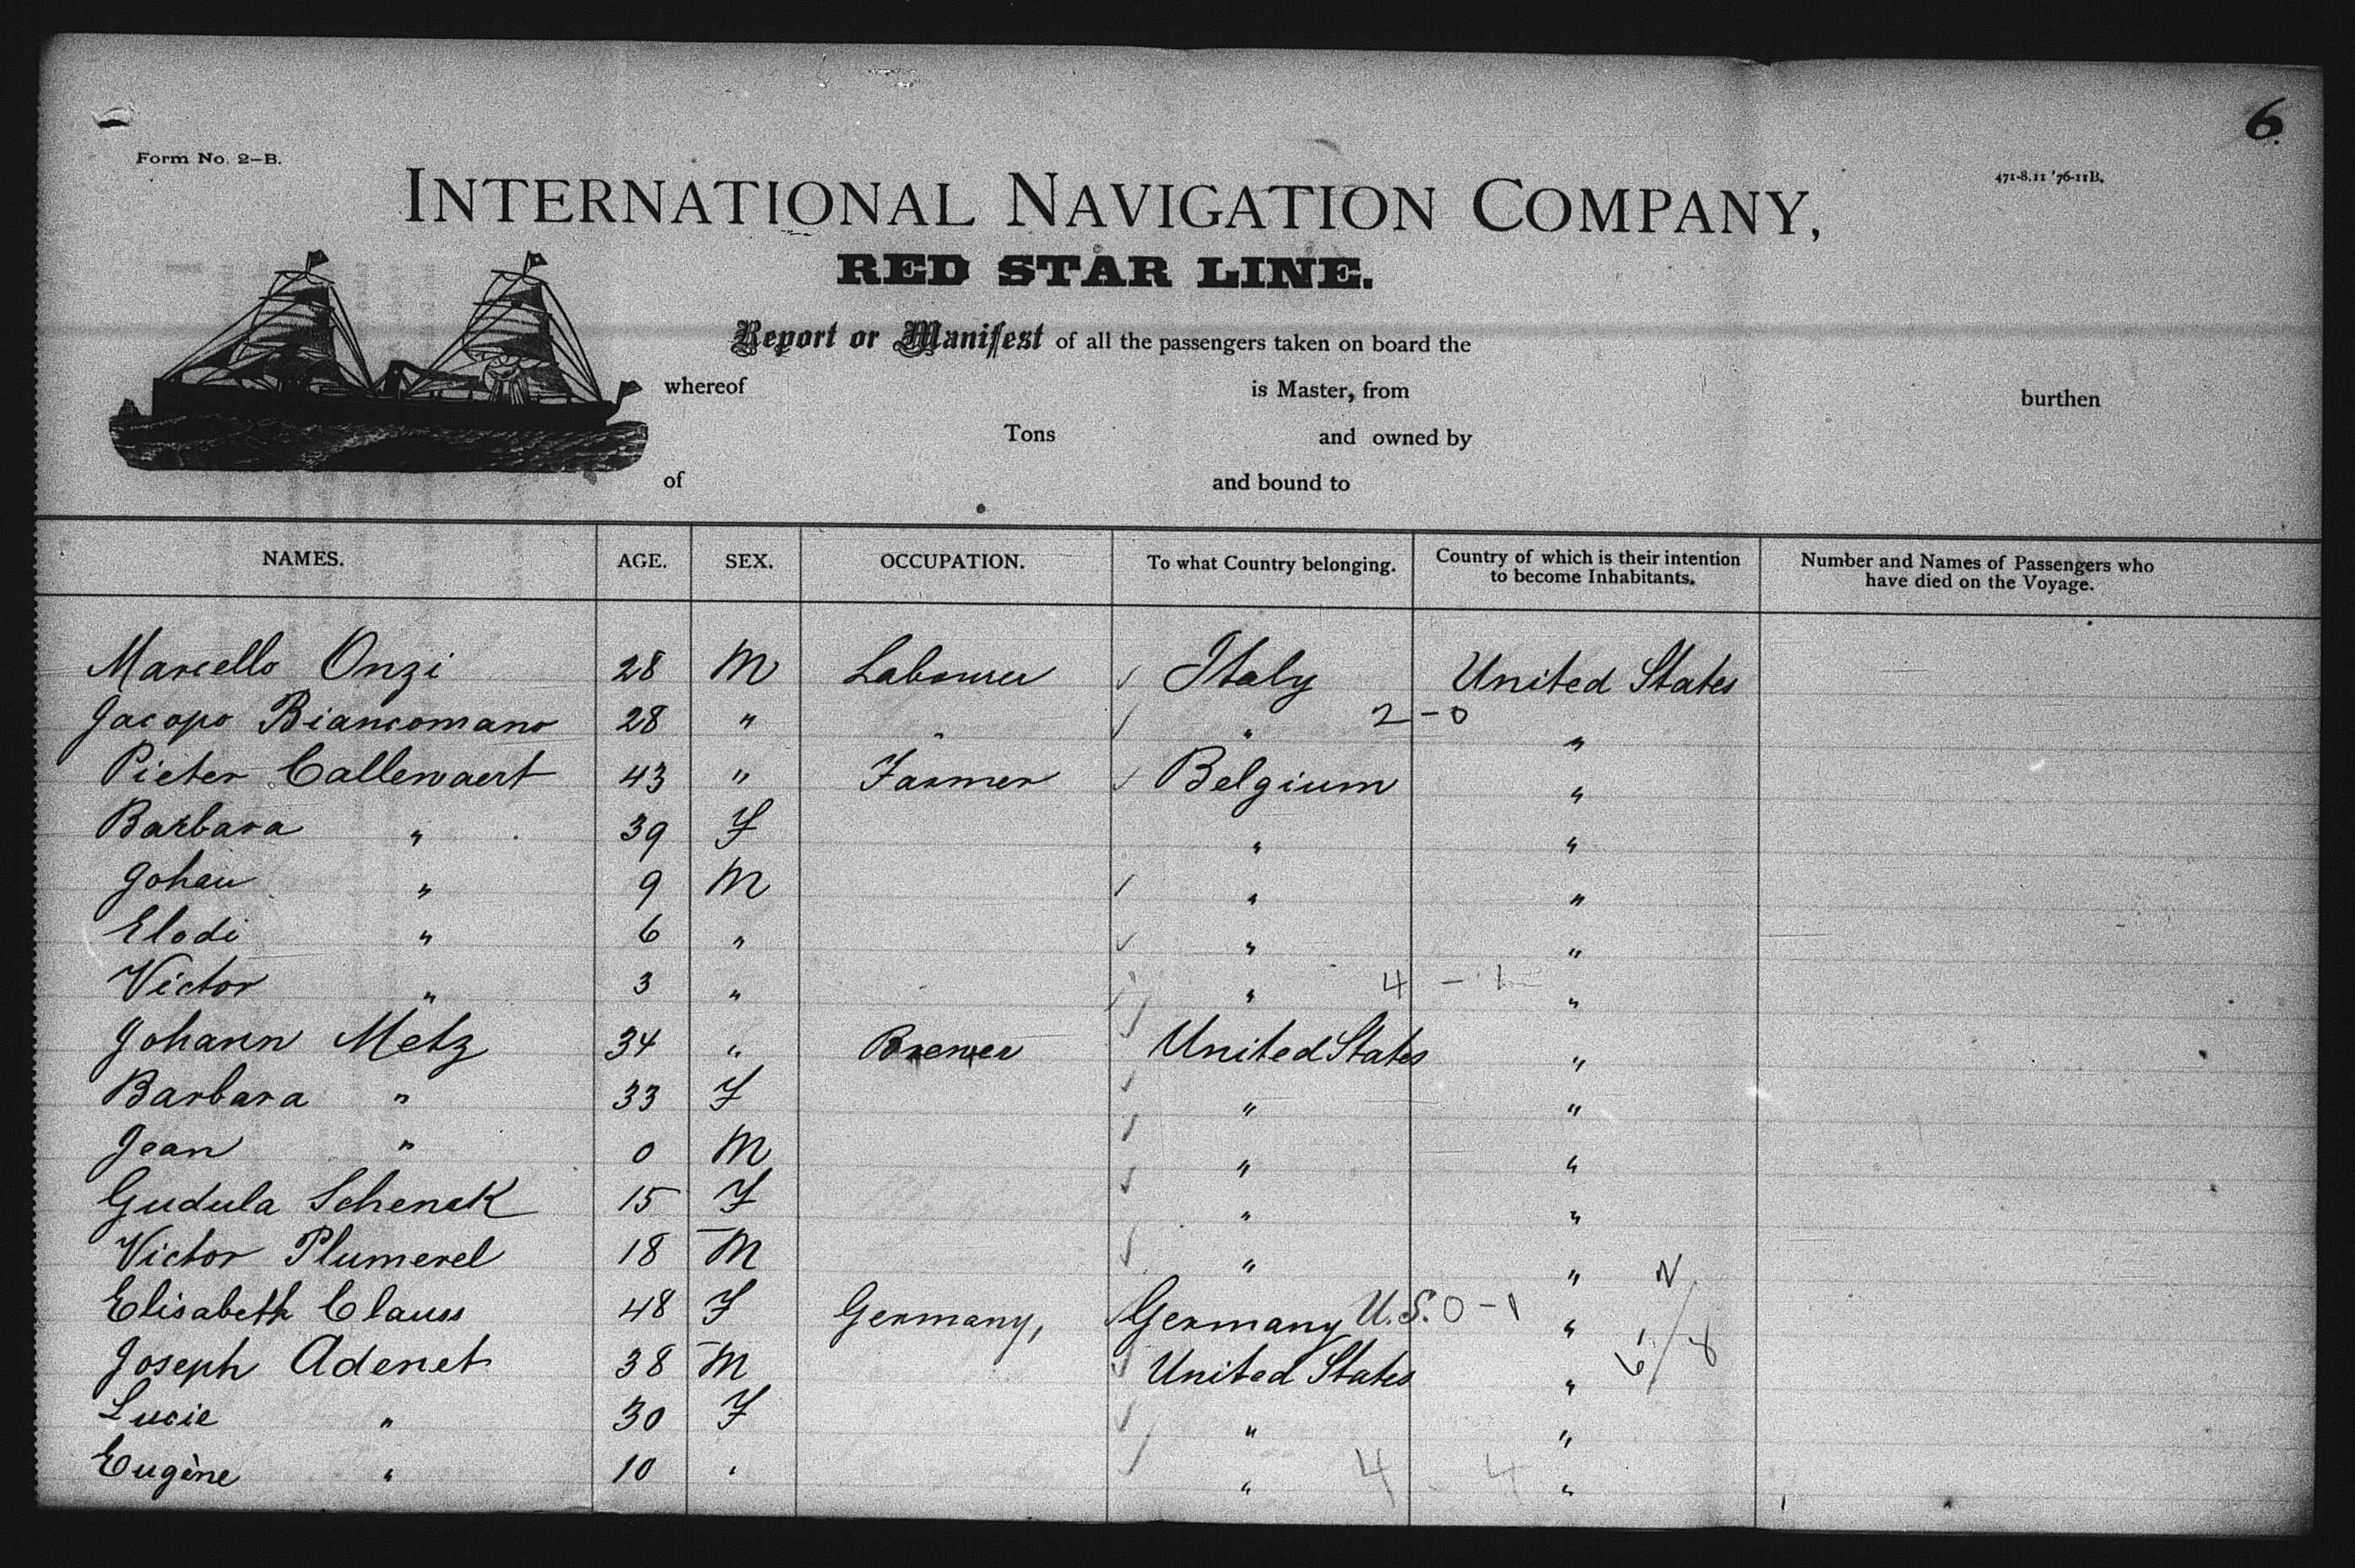 6
Form No. 2-B.
471-8.11 '76-11B.
INTERNATIONAL NAVIGATION COMPANY,
RED STAR LINE.
Report or Manifest of all the passengers taken on board the
whereof is Master, from burthen
Tons and owned by
of and bound to
NAMES. AGE. SEX. OCCUPATION. To what Country belonging. Country of which is their intention to become Inhabitants. Number and Names of Passengers who have died on the Voyage.
Marcello Onzi 28 M Labourer ✓ Italy United States
Jacopo Biancomano 28 " " ✓ " 2-0 "
Pieter Callewaert 43 " Farmer ✓ Belgium "
Barbara " 39 F " "
Johan " 9 M ✓ " "
Elodi " 6 " ✓ " "
Victor " 3 " ✓ " 4 - 1 "
Johann Metz 34 " Brewer ✓ United States "
Barbara " 33 F ✓ " "
Jean " 0 M ✓ " "
Gudula Schenck 15 F ✓ " "
Victor Plumerel 18 M ✓ " " N
Elisabeth Clauss 48 F Germany, ✓ Germany U.S. 0-1 "
Joseph Adenet 38 M ✓ United States "
Lucie " 30 F ✓ " "
Eugène " 10 " ✓ " 4 4 "